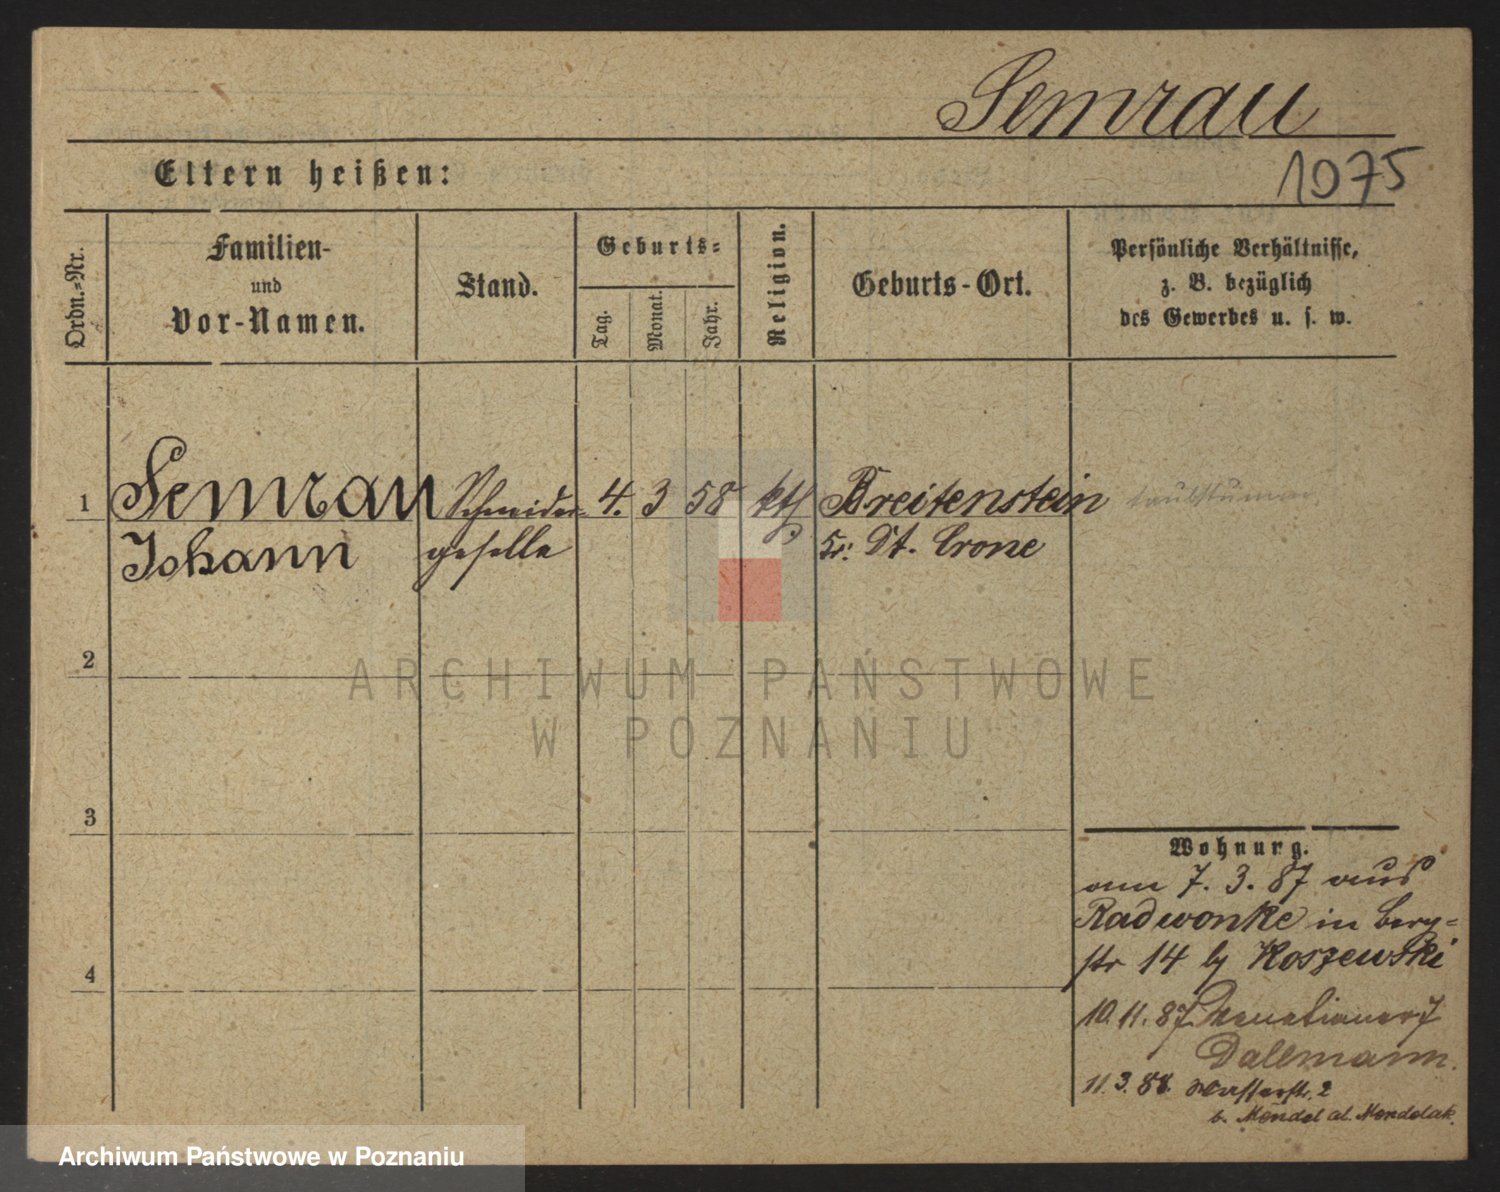 Semrau
1075
Eltern heißen:
Ordn.-Nr.
Familien-
und
Vor-Namen.
Stand.
Geburts-
Tag.
Monat.
Jahr.
Religion.
Geburts-Ort.
Persönliche Verhältnisse,
z. B. bezüglich
des Gewerbes u. s. w.
1 Semrau Schneider- 4. 3 58 kth Breitenstein taubstumm
Johann geselle Kr. Dt. Crone
2
3
4
Wohnung.
am 7. 3. 87 aus
Radwonke in Berg-
str 14 by Koszewski
10. 11. 87 Venetianer 7
Dallmann.
11. 3. 88. Wasserstr. 2
b. Mendel al. Mendelak.
ARCHIWUM PAŃSTWOWE
W POZNANIU
Archiwum Państwowe w Poznaniu